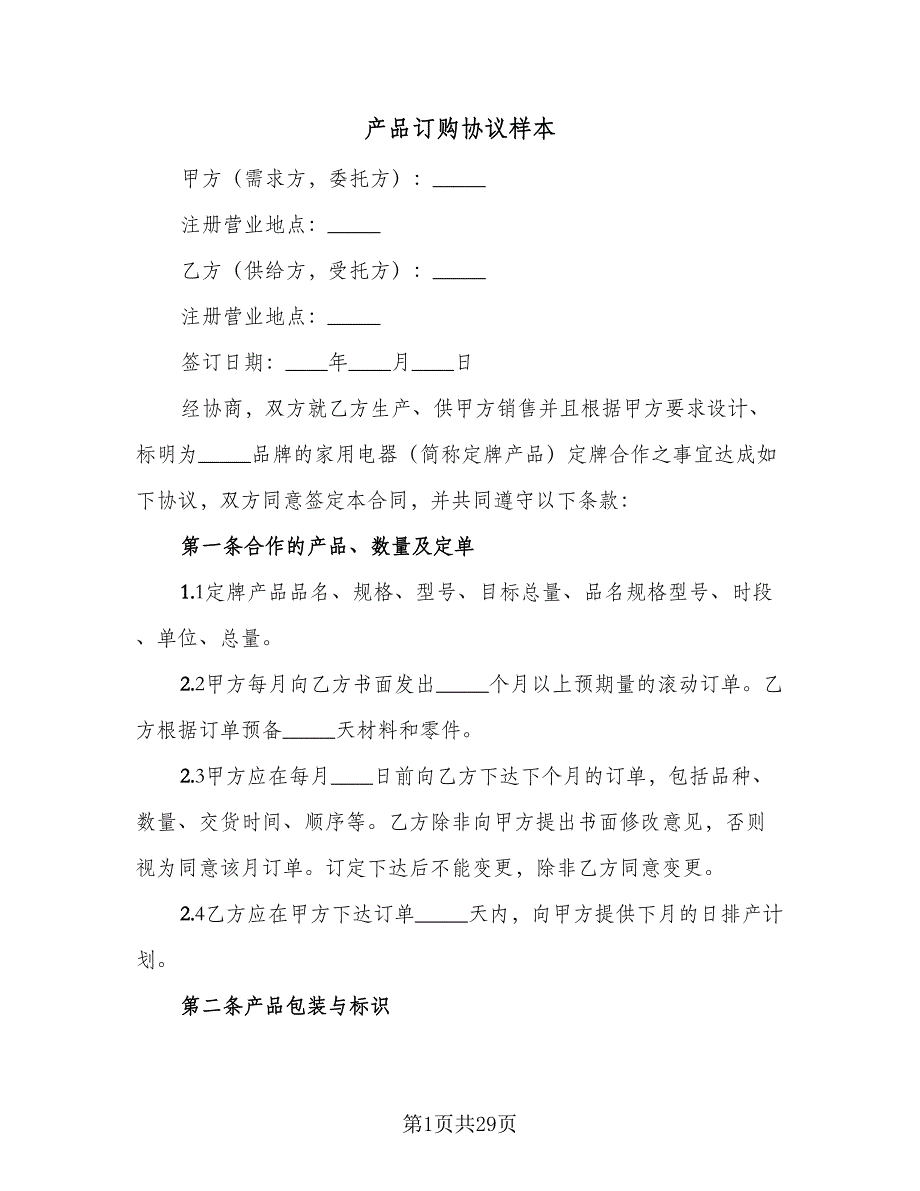 产品订购协议样本
甲方（需求方，委托方）：_____
注册营业地点：_____
乙方（供给方，受托方）：_____
注册营业地点：_____
签订日期：____年____月____日
经协商，双方就乙方生产、供甲方销售并且根据甲方要求设计、
标明为_____品牌的家用电器（简称定牌产品）定牌合作之事宜达成如
下协议，双方同意签定本合同，并共同遵守以下条款：
第一条合作的产品、数量及定单
1.1定牌产品品名、规格、型号、目标总量、品名规格型号、时段
、单位、总量。
2.2甲方每月向乙方书面发出_____个月以上预期量的滚动订单。乙
方根据订单预备_____天材料和零件。
2.3甲方应在每月____日前向乙方下达下个月的订单，包括品种、
数量、交货时间、顺序等。乙方除非向甲方提出书面修改意见，否则
视为同意该月订单。订定下达后不能变更，除非乙方同意变更。
2.4乙方应在甲方下达订单_____天内，向甲方提供下月的日排产计
划。
第二条产品包装与标识
第1页共29页